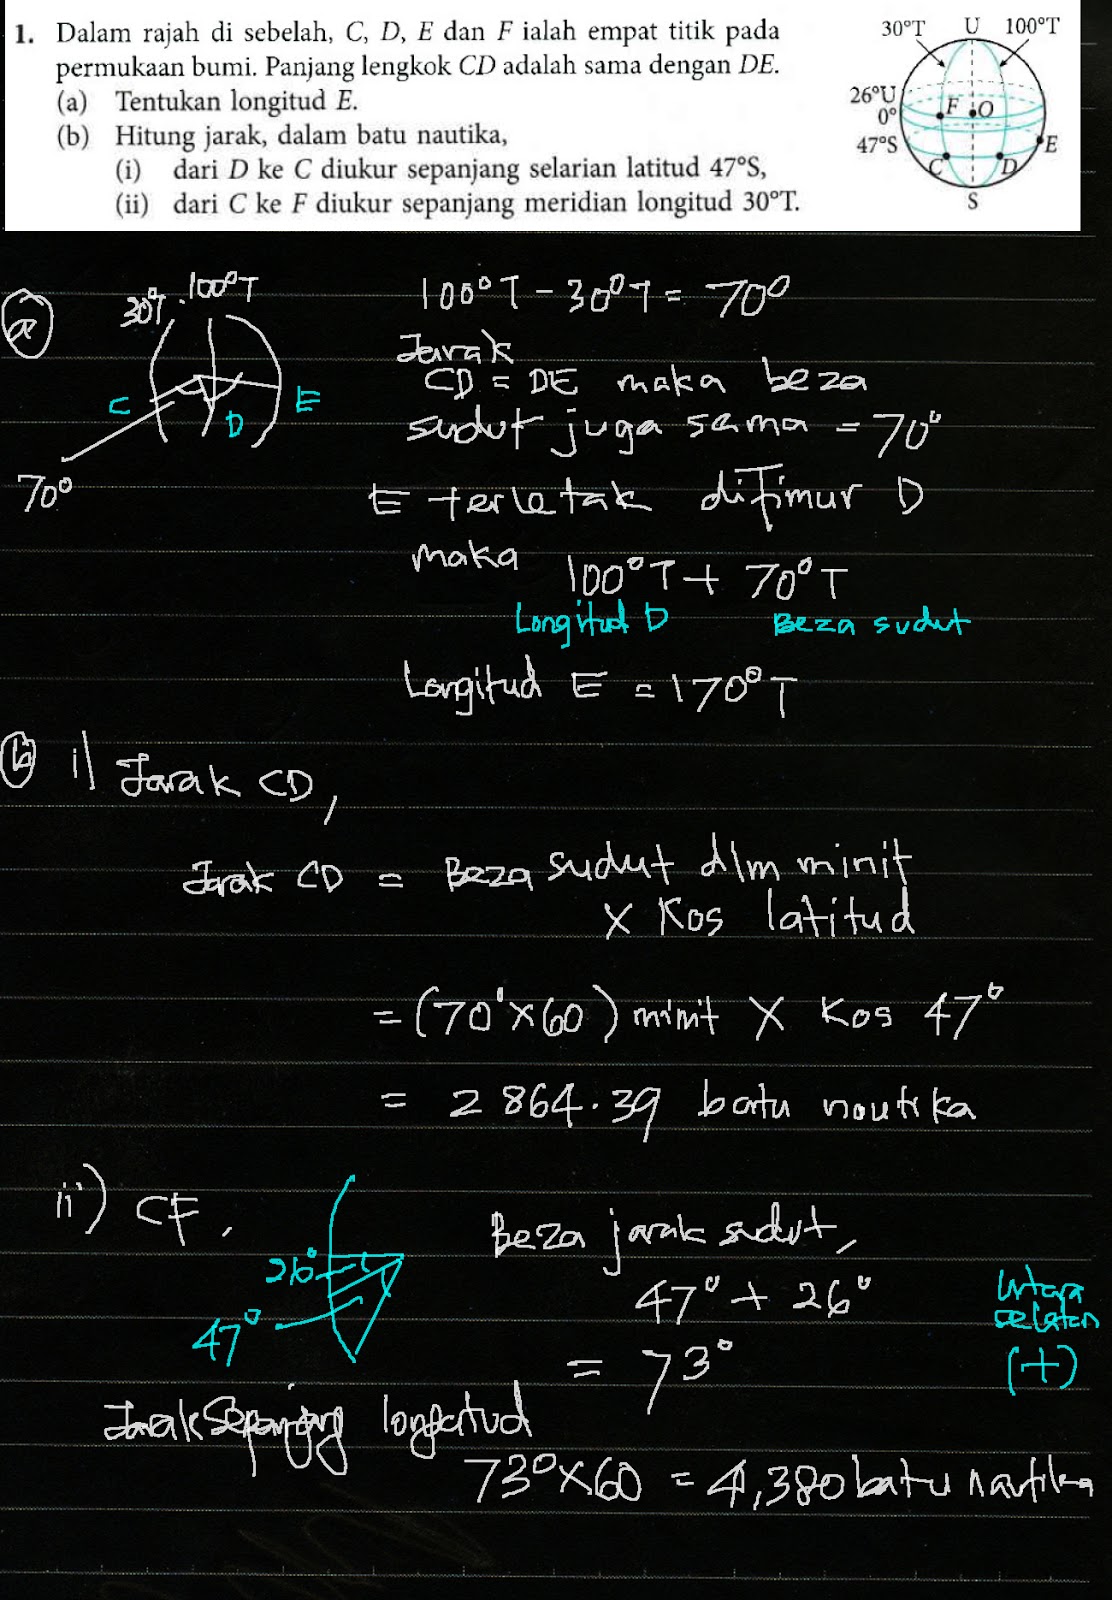 1. Dalam rajah di sebelah, C, D, E dan F ialah empat titik pada
permukaan bumi. Panjang lengkok CD adalah sama dengan DE.
(a) Tentukan longitud E.
(b) Hitung jarak, dalam batu nautika,
(i) dari D ke C diukur sepanjang selarian latitud 47°S,
(ii) dari C ke F diukur sepanjang meridian longitud 30°T.
30°T U 100°T
26°U
0°
47°S
F O
C D E
S
a
30°T 100°T
C D E
70°
100°T - 30°T = 70°
Jarak
CD = DE maka beza
sudut juga sama = 70°
E terletak diTimur D
maka 100°T + 70°T
Longitud D Beza sudut
Longitud E = 170°T
b i) Jarak CD,
Jarak CD = Beza sudut dlm minit
× Kos latitud
= (70°×60) minit × Kos 47°
= 2 864.39 batu nautika
ii) CF,
26°
47°
Beza jarak sudut,
47° + 26°
= 73°
Utara
selatan
(+)
Jarak Sepanjang longitud
73°×60 = 4,380 batu nautika